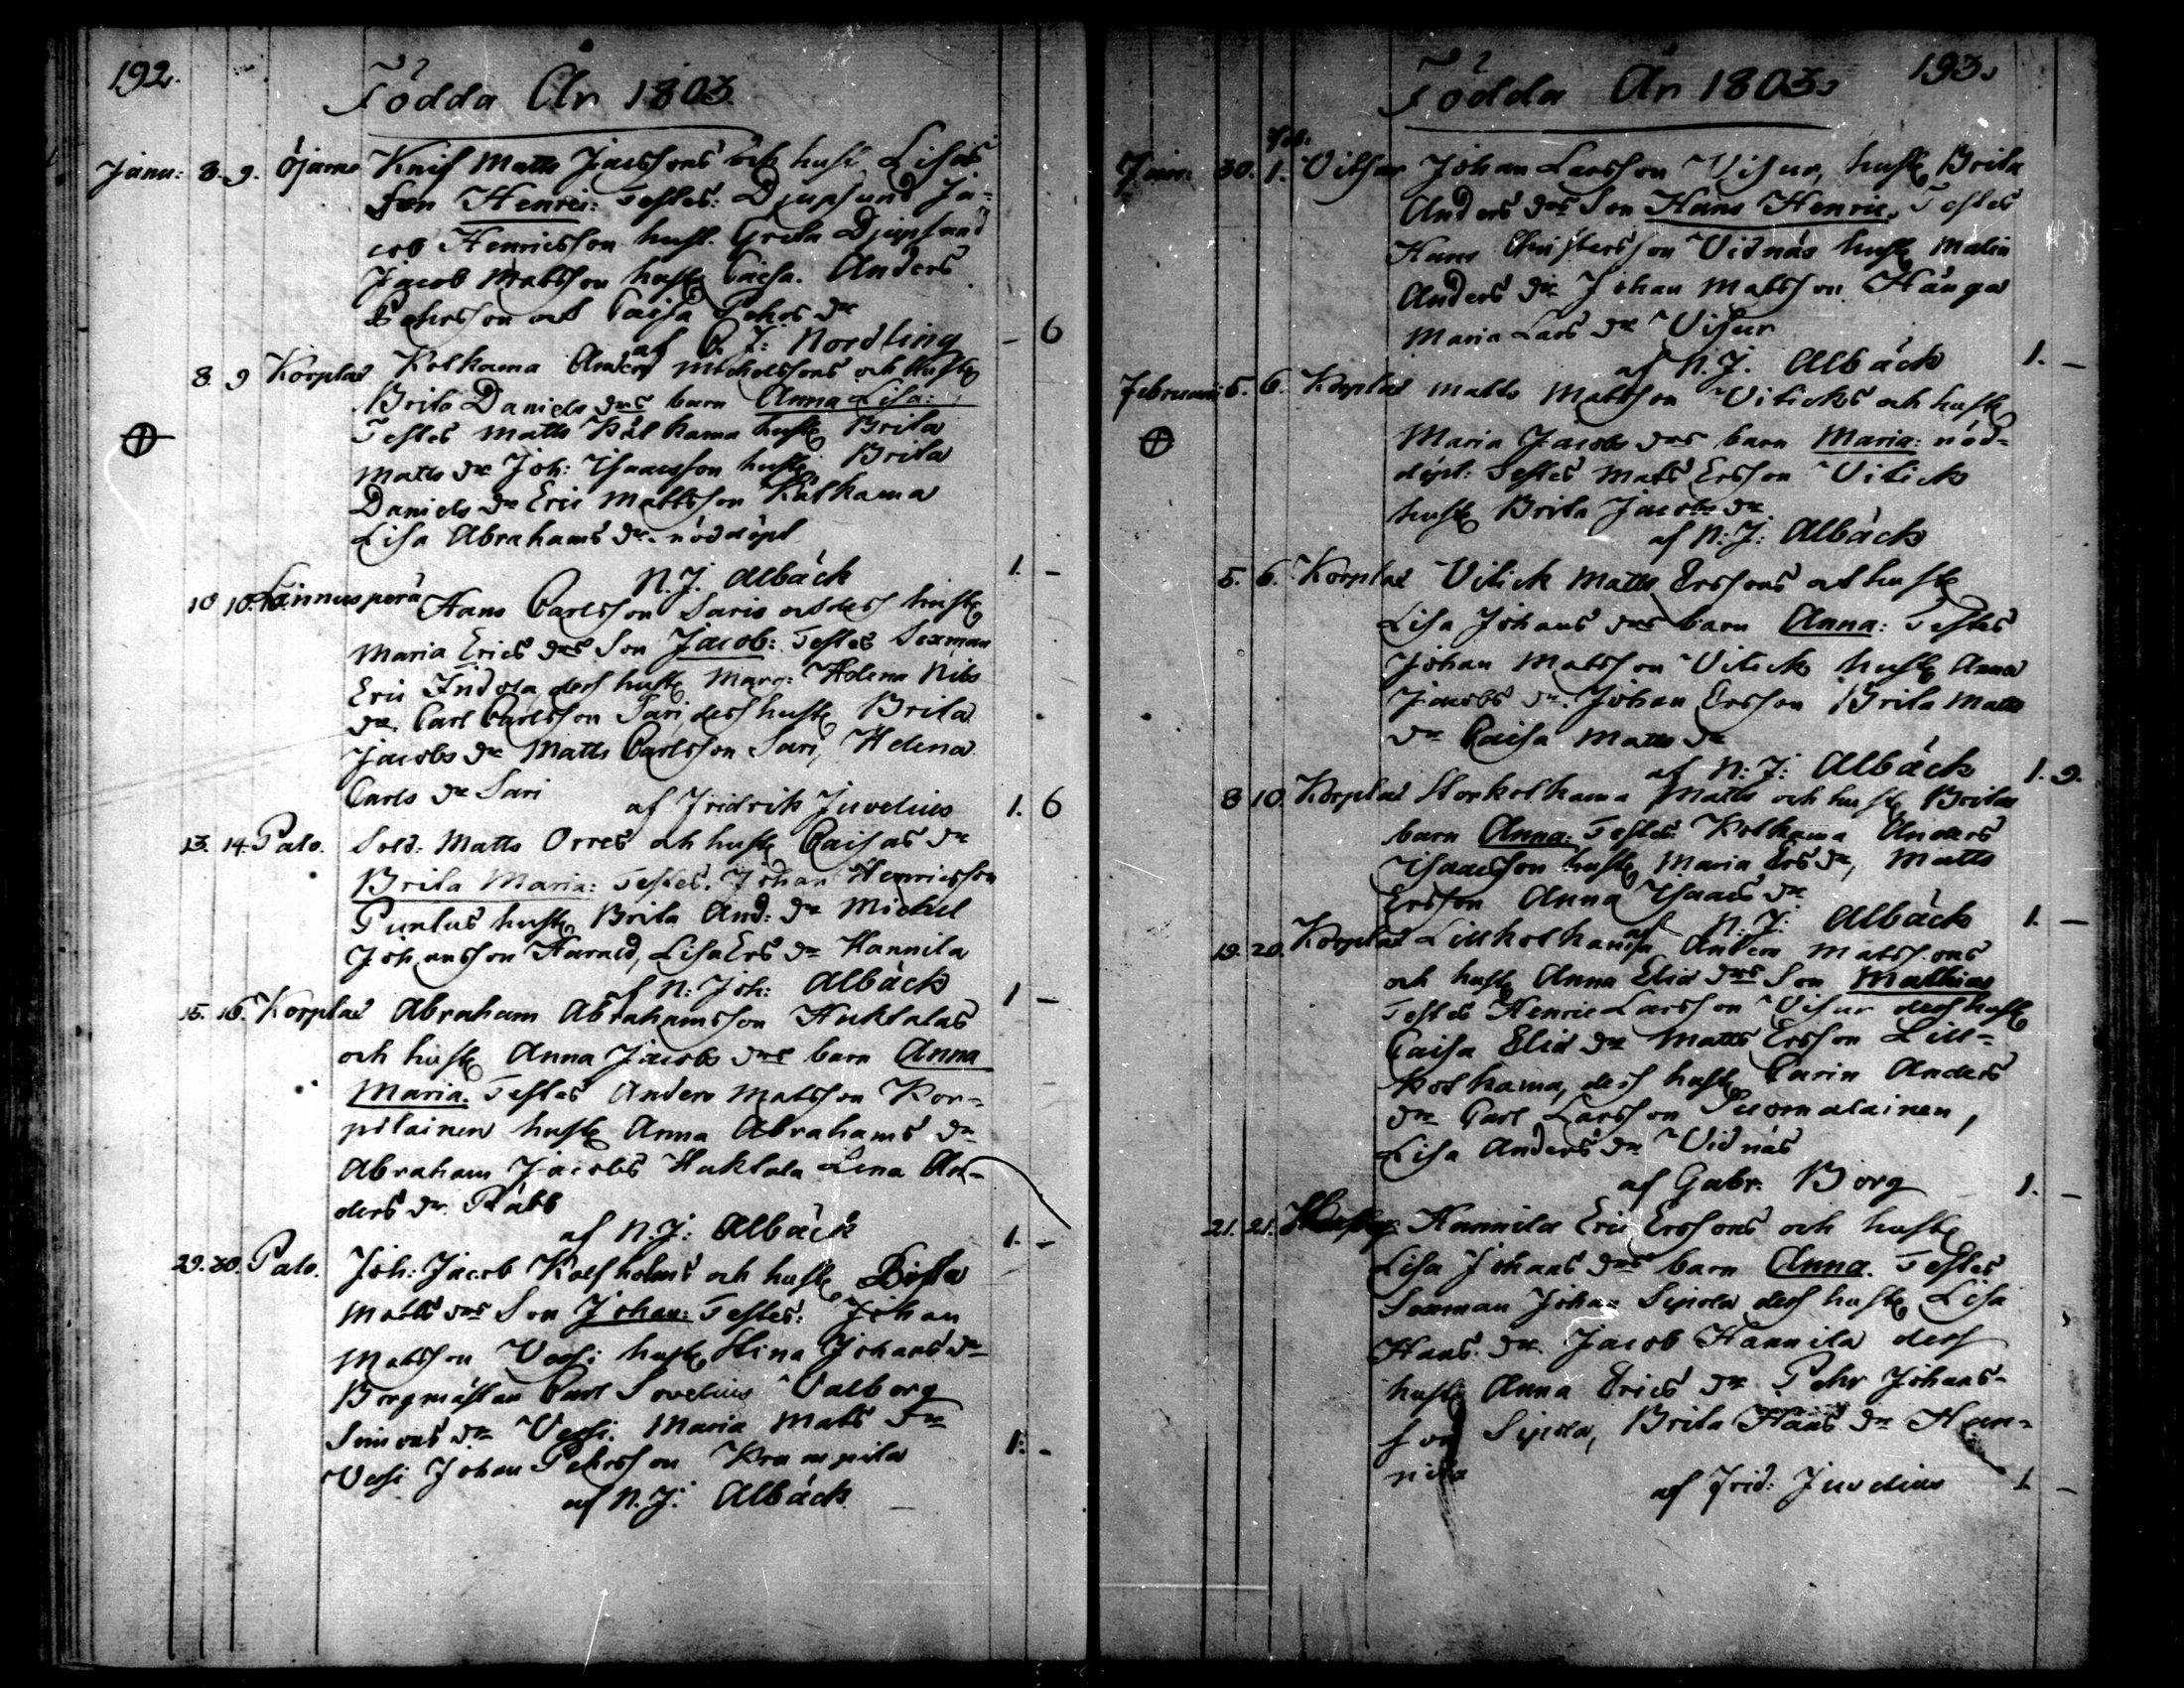 192.
Födda År 1803.
Janu: 8. 9. Öjarne Knif Matts Jacssons och hust. Lisas
son Henric: Testes: Djupsund Ja-
cob Henricsson hust. Greta Djupsund
Jacob Mattsson hust. Caisa. Anders
Pehrsson och Caisa Pehrs dr
af C. J: Nordling — 6
8. 9 Korplax Kolkama Anders Michelssons och hust.
Brita Daniels drs barn Anna Lisa:
Testes Matts Kålkama hust. Brita
Matts dr Joh: Isaacsson hust. Brita
Daniels dr Eric Mattsson Kålkama
Lisa Abrahams dr. nöddöpt
N. J. Albäck 1. —
10 10. Hans Carlsson Saris och dess hust.
Maria Erics drs Son Jacob: Testes Sexman
Eric Indola dess hust. Marg: Helena Nils
dr. Carl Carlsson Sari, dess hust. Brita
Jacobs dr Matts Carlsson Sari, Helena
Carls dr Sari
af Fridrik Juvelius 1. 6
13. 14. Palo. Sold: Matts Orres och hust. Caisas dr
Brita Maria: Testes. Johan Henricsson
Puntus hust. Brita And: dr Michel
Johansson Harald, Lisa Ers dr Hannila
af N: Joh: Albäck 1 —
15. 16. Korplax Abraham Abrahamsson Huktalas
och hust. Anna Jacobs drs barn Anna
Maria. Testes Anders Matsson Kor-
pilainen hust. Anna Abrahams dr
Abraham Jacobs Huktala Lena An-
ders dr. Råbb
af N. J: Albäck 1. —
29. 30. Palo. Joh: Jacob Kolfholms och hust.
Matts drs Son Johan: Testes: Johan
Matsson Vessi hust. Stina Johans dr
Borgmästar Carl Sovelius Valborg
Simons dr Vessi. Maria Mats dr
Vessi Johan Pehrsson Krumpila 1: —
af N. J: Albäck. —
Födda År 1803. 193.
Feb:
Janu: 30. 1. Vitsar Johan Larsson Visur, hust. Brita
Anders drs Son Hans Henric, Testes
Hans Christersson Vidnäs hust. Malin
Anders dr Johan Matsson Hänga
Maria Lars dr Visur
af N. J. Albäck 1. —
Februarii 5. 6. Korplax Matts Matsson Viticks och hust.
Maria Jacobs drs barn Maria: nöd-
döpt: Testes Mats Ersson Vitick
hust. Brita Jacobs dr.
af N: J: Albäck
5. 6. Korplax Vitick Matts Erssons och hust.
Lisa Johans drs barn Anna: Testes
Johan Matsson Vitick hust. Anna
Jacobs dr. Johan Ersson Brita Matts
dr Caisa Matts dr
af N: J: Albäck 1. 9.
8 10. Korplax Storkolkama Matts och hust. Britas
barn Anna: Testes Kolkama Anders
Isaacsson hust. Maria Ers dr, Matts
Ersson Anna Isaacs dr
af N: J: Albäck 1. —
19. 20. Korplax Lillkolkama Anders Matssons
och hust. Anna Elia drs Son Mathias
Testes Henric Larsson Visur dess hust.
Caisa Elia dr Matts Ersson Lill-
kolkama, dess hust. Carin Anders
dr Carl Larsson Suomalainen,
Lisa Anders dr Vidnäs
af Gabr: Borg 1. —
21. 21. Hannila Eric Erssons och hust.
Lisa Johans drs barn Anna. Testes
Sexman Johan Sipola dess hust. Lisa
Hans dr. Jacob Hannila dess
hust. Anna Erics dr Pehr Johans-
son Sipola, Brita Hans dr Han-
nila
af Frid: Juvelius 1 —